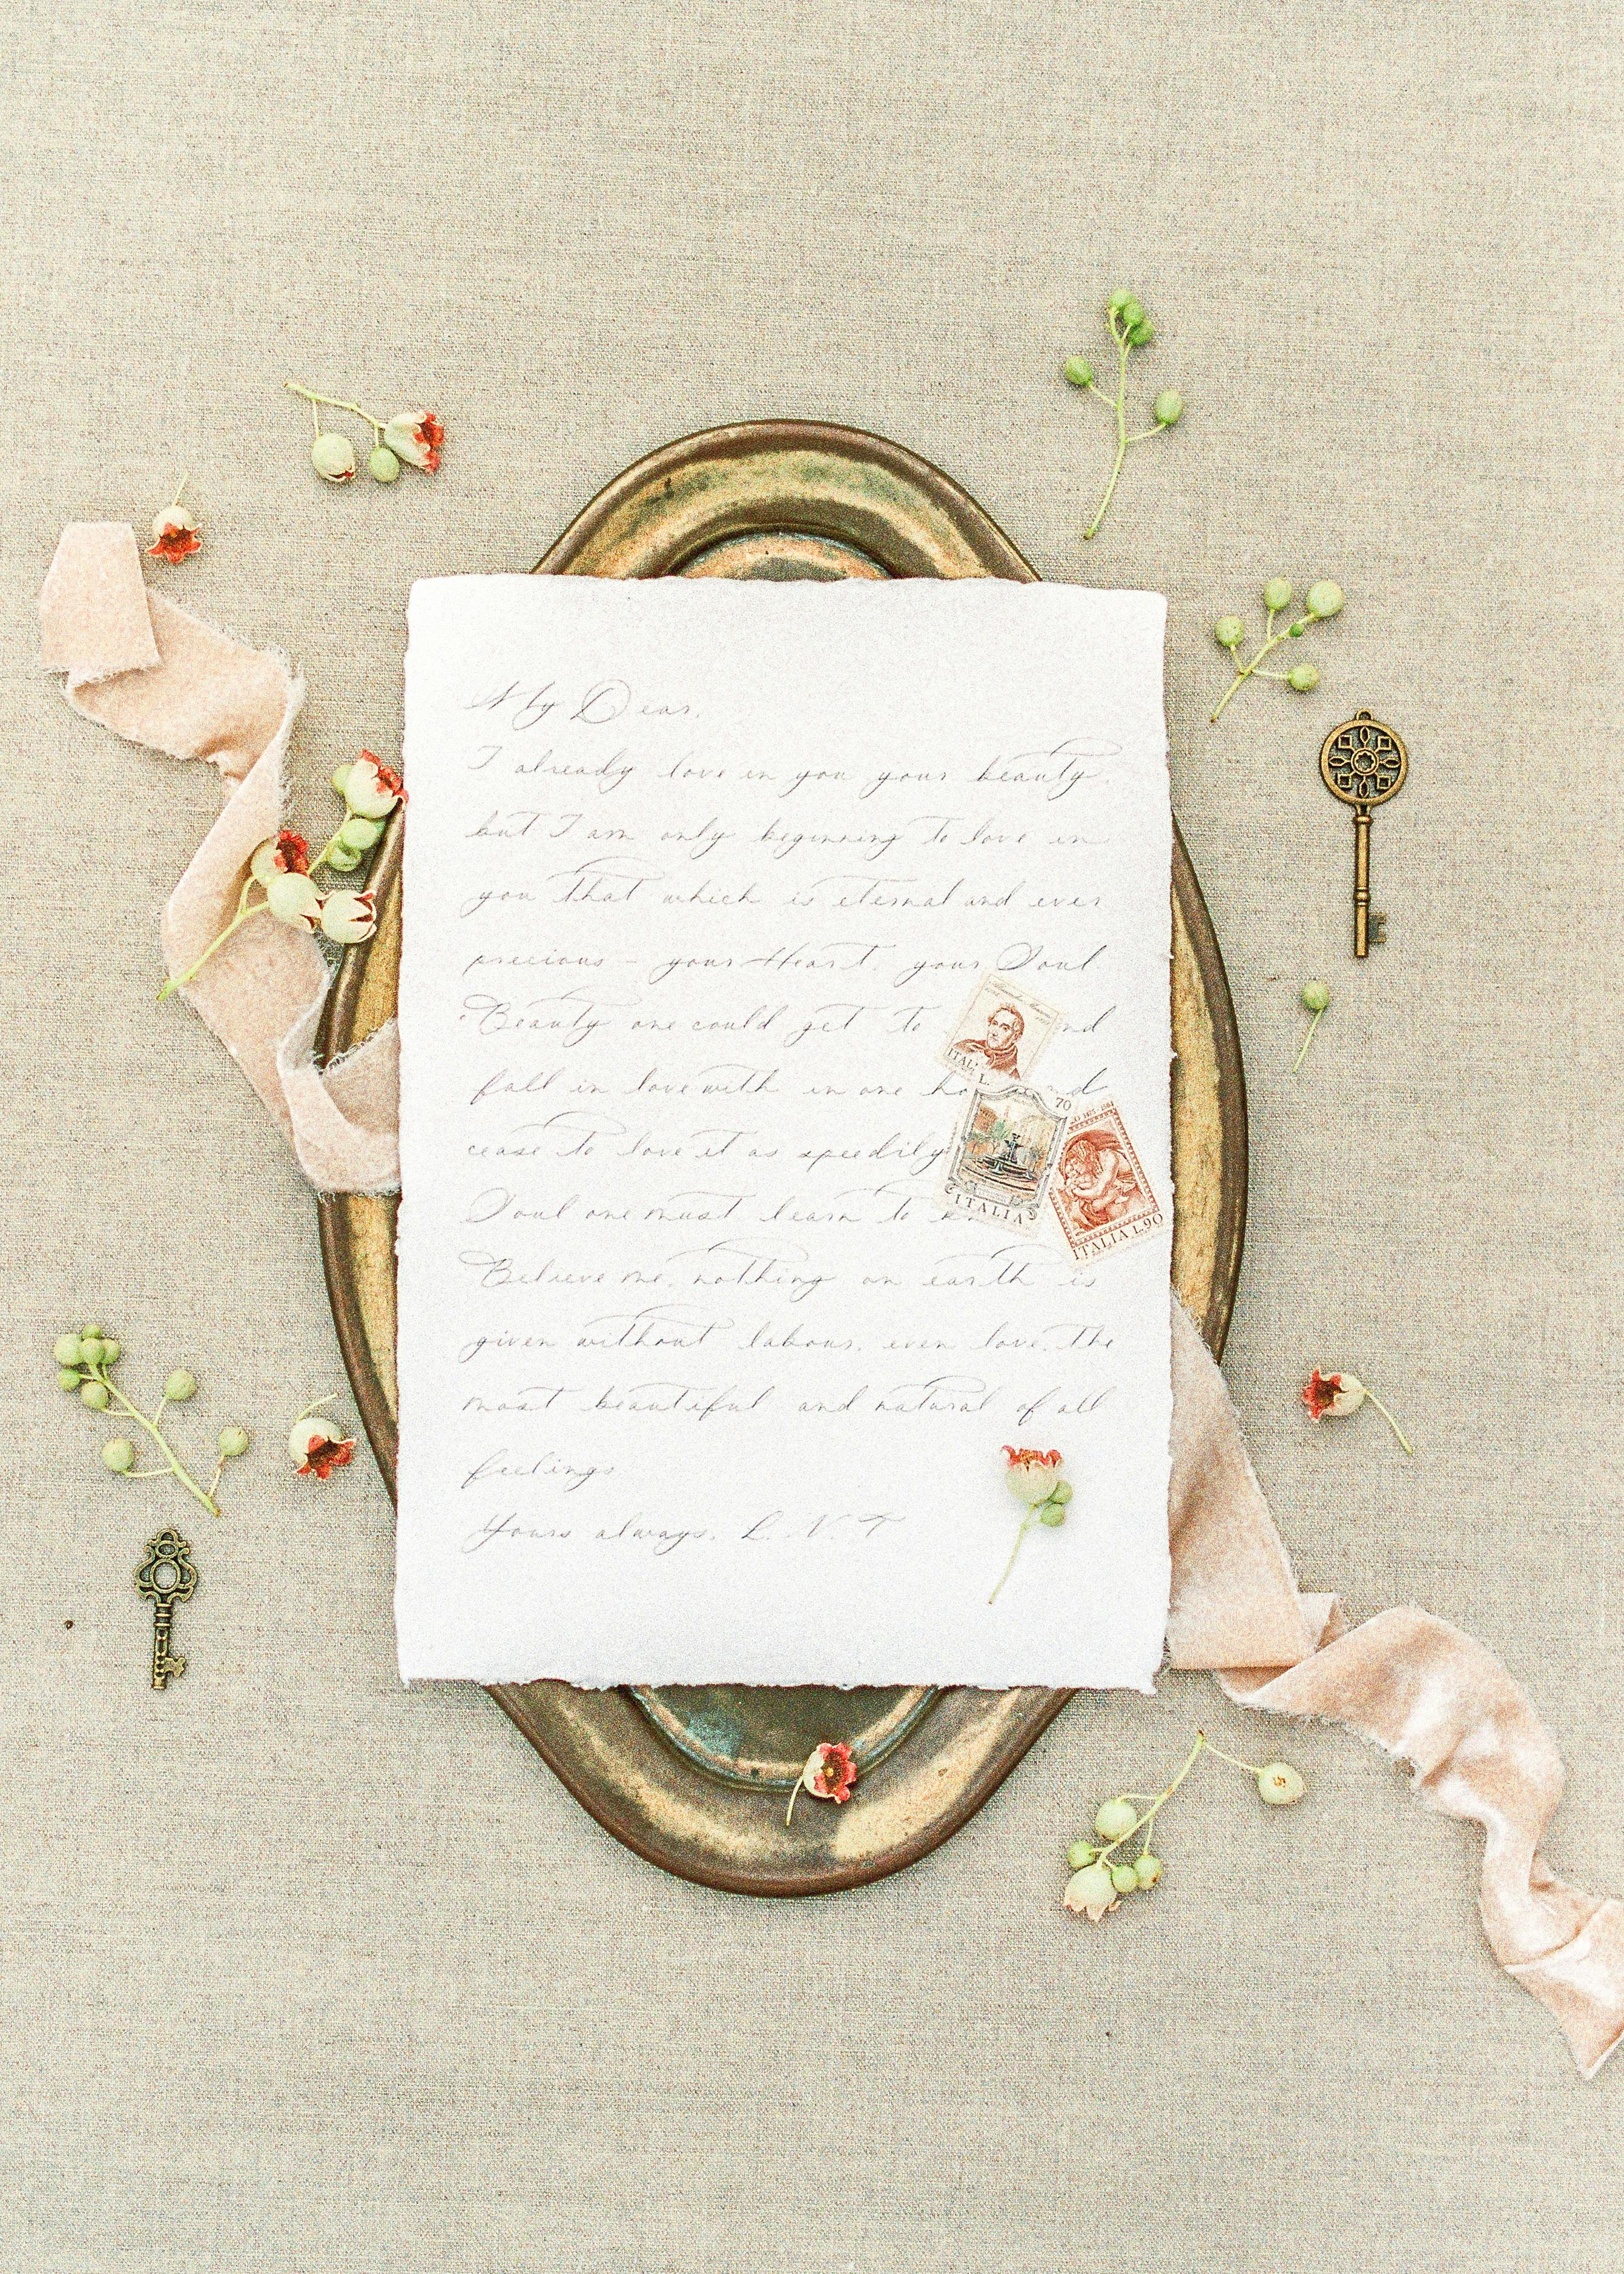 My Dear,
I already love in you your beauty,
but I am only beginning to love in
you that which is eternal and ever
precious – your Heart, your Soul
Beauty one could get to
fall in love with in one
cease to love it as speedily
Soul one must learn to
Believe me, nothing on earth is
given without labour, even love, the
most beautiful and natural of all
feelings
Yours always, L. N. T
ITALIA L.
70
ITALIA
ITALIA L.90